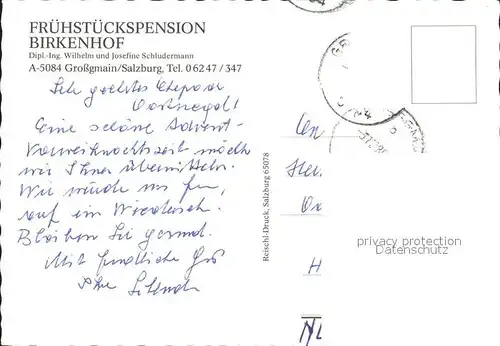 FRÜHSTÜCKSPENSION
BIRKENHOF
Dipl.-Ing. Wilhelm und Josefine Schludermann
A-5084 Großgmain/Salzburg, Tel. 0 62 47 / 347
Sehr geehrtes Ehepaar
Eine schöne Advent-
Vorweihnachtszeit möchten
wir Ihnen übermitteln.
Wir würde uns
auf ein Wiederseh.
Bleiben Sie gesund.
Mit freundliche Gruß
Ihre
Reischl-Druck, Salzburg 65078
An
H
NL
privacy protection
Datenschutz